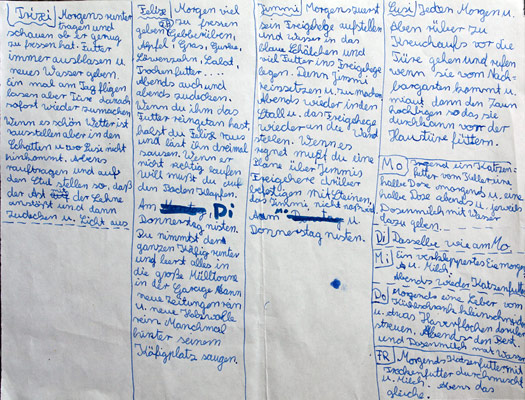 Trixi Morgens runter
tragen und
schauen ob er genug
zu fressen hat. Futter
immer ausblasen u.
neues Wasser geben.
Ein mal am Tag fliegen
lassen aber Türe danach
sofort wieder zumachen
Wenn es schön Wetter ist
rausstellen aber in den
Schatten u wo Susi nicht
hinkommt. Abens
rauftragen und auf
den Stul stellen so, daß
der an der Lehne
anstößt und dann
zudecken u. Licht aus
Felix Morgen viel
zu fressen
geben Gelberüben,
Apfel, Gras, Gurke,
Löwenzahn, Salad,
Trochenfutter....
Abends auch und
abends zudecken.
Wenn du ihm das
Futter reingetan hast,
holst du Felix raus
und läst ihn dreimal
sausen. Wenn er
nicht richtig laufen
will mußt du auf
den Boden klopfen.
Am Di
Donnerstag misten.
Du nimmst den
ganzen Käfig runter
und leerst alles in
die große Mülltonne
in der Garage dann
neue Zeitungen rein
u. neue Hobelwolle
rein. Manchmal
hinter seinem
Käfigplatz saugen.
Jimmi Morgens zuerst
sein Freigehege aufstellen
und Wasser in das
blaue Schälchen und
viel Futter ins Freigehege
legen. Dann Jimmi
reinsetzen u. zumachen
Abends wieder in den
Stall u. das Freigehege
wieder an die Wand
stellen. Wenn es
regnet mußt du eine
Plane über Jimmis
Freigehege drüber
befestigen mit Steinen,
das Jimmi nicht naß wird.
Am Mi u.
Donnerstag misten.
Susi Jeden Morgen u.
Aben rüber zu
Kreuchaufs vor die
Türe gehen und rufen
wenn sie vom Nach-
bargarten kommt u.
miaut dann den Zaun
hochbigen so das sie
durchkann vor der
Haustüre füttern.
Mo Irgend ein Katzen-
futter vom Keller eine
halbe Dose morgends u. eine
halbe Dose abends u. jeweils
Dosenmilch mit Wasser
dazu geben.
Di Dasselbe wie am Mo.
Mi Ein verkleppertes Ei morgens
u. Milch.
abends wieder Katzenfutter
Do Morgends eine Leber vom
Kühlschrank kleinschneiden
u. etwas Haverflochen darüber
streuen. Abends den Rest
und Dosenmilch mit Wasser
FR Morgends Katzenfutter mit
Trochenfutter durchmischt
u. Milch. Abens das
gleiche.